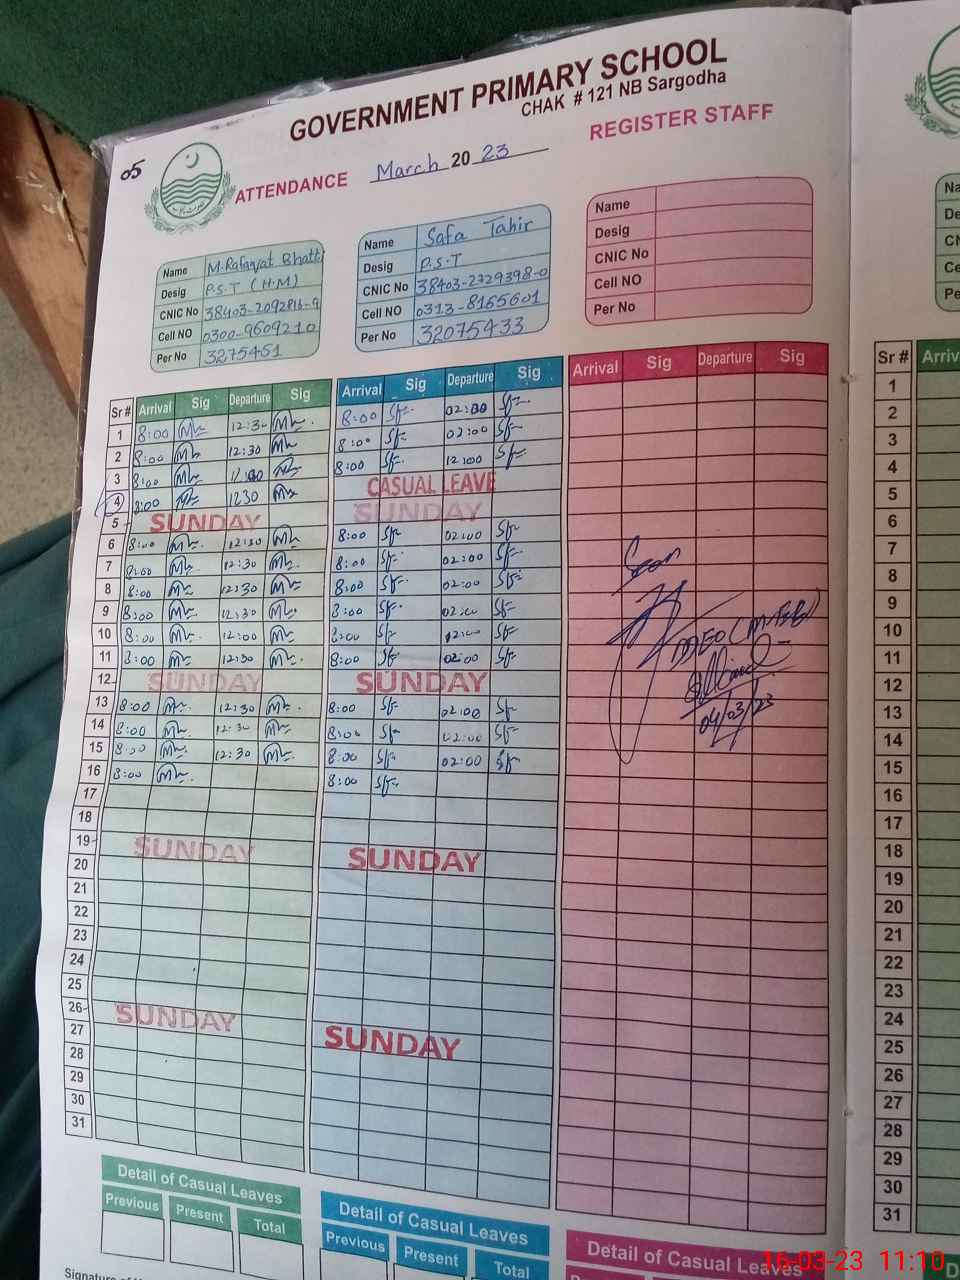 GOVERNMENT PRIMARY SCHOOL
CHAK # 121 NB Sargodha
05
ATTENDANCE March 2023 REGISTER STAFF
Name M.Rafaqat Bhatti
Desig P.S.T (H.M)
CNIC No 38403-2092816-9
Cell NO 0300-9609210
Per No 3275451
Name Safa Tahir
Desig P.S.T
CNIC No 38403-2729398-0
Cell NO 0313-8165601
Per No 32075433
Name
Desig
CNIC No
Cell NO
Per No
Sr # Arrival Sig Departure Sig Arrival Sig Departure Sig Arrival Sig Departure Sig
1 8:00 12:30 8:00 02:00
2 8:00 12:30 8:00 02:00
3 8:00 12:00 8:00 12:00
4 8:00 1230 CASUAL LEAVE
5 SUNDAY SUNDAY
6 8:00 12:30 8:00 02:00
7 8:00 12:30 8:00 02:00
8 8:00 12:30 8:00 02:00
9 8:00 12:30 8:00 02:00
10 8:00 12:00 8:00 12:00
11 8:00 12:30 8:00 02:00
12 SUNDAY SUNDAY
13 8:00 12:30 8:00 02:00
14 8:00 12:30 8:00 02:00
15 8:00 12:30 8:00 02:00
16 8:00 8:00
17
18
19 SUNDAY SUNDAY
20
21
22
23
24
25
26 SUNDAY SUNDAY
27
28
29
30
31
Seen
04/03/23
Detail of Casual Leaves
Previous Present Total
Detail of Casual Leaves
Previous Present Total
Detail of Casual Leaves
Sr # Arriv
1
2
3
4
5
6
7
8
9
10
11
12
13
14
15
16
17
18
19
20
21
22
23
24
25
26
27
28
29
30
31
16-03-23 11:10